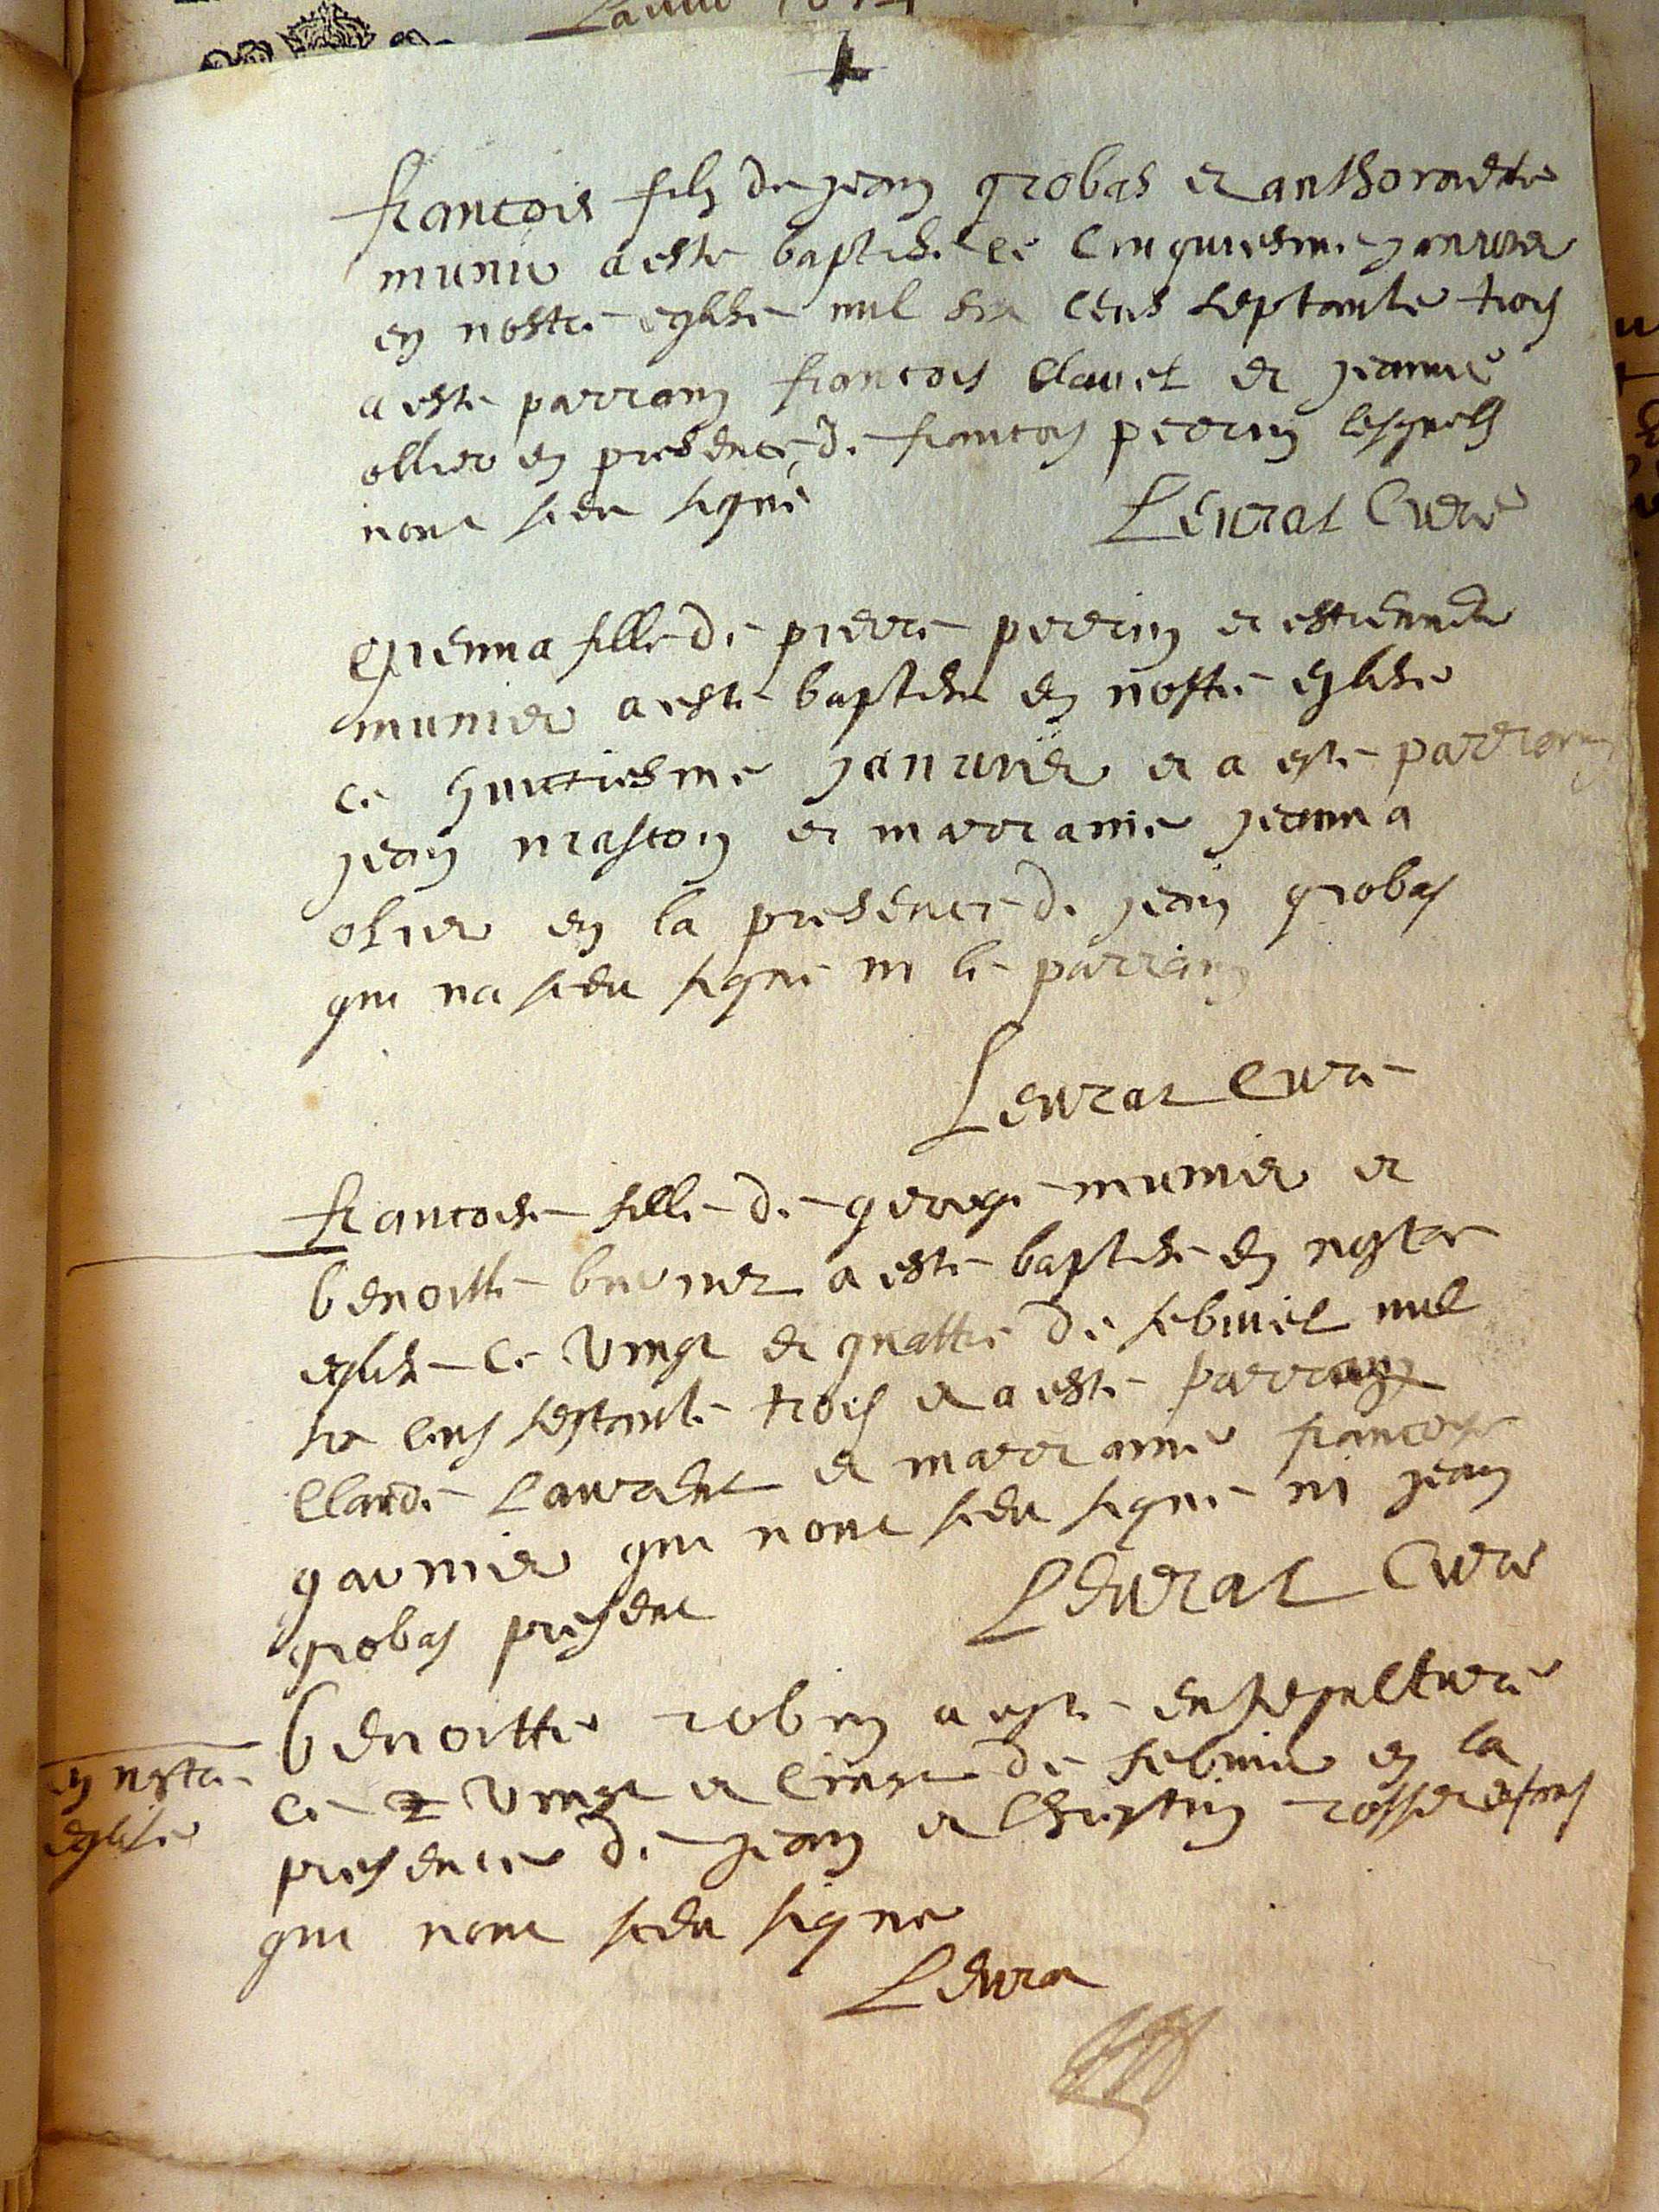 francois filz de jean grobas et anthoinette
munie a este baptise ce cinquiesme janvier
en nostre eglise mil six cens septante trois
a este parrain francois clavel et jeanne
ollier en presence de francois perrin lesquels
nont sceu signe
Leurat Cure
fille de pierre perrin et estiennette
munier a este baptise en nostre eglise
ce huictiesme januvier et a este parrain
jean et marraine jeanna
olier en la presence de jean grobas
qui na sceu signe ni le parrain
Leurat Cure
francoise fille de george munier et
benoitte a este baptise en nostre
eglise ce vingt et quattre de febvrier mil
six cens septante trois et a este parrain
Claude Laurent et marraine francoise
garnier qui nont sceu signe ni jean
grobas present
Leurat Cure
benoitte robin a este ensepulture
en nostre
eglise
ce vingt et cinq de febvrie en la
presence de jean et Christin
qui nont sceu signe
Leura